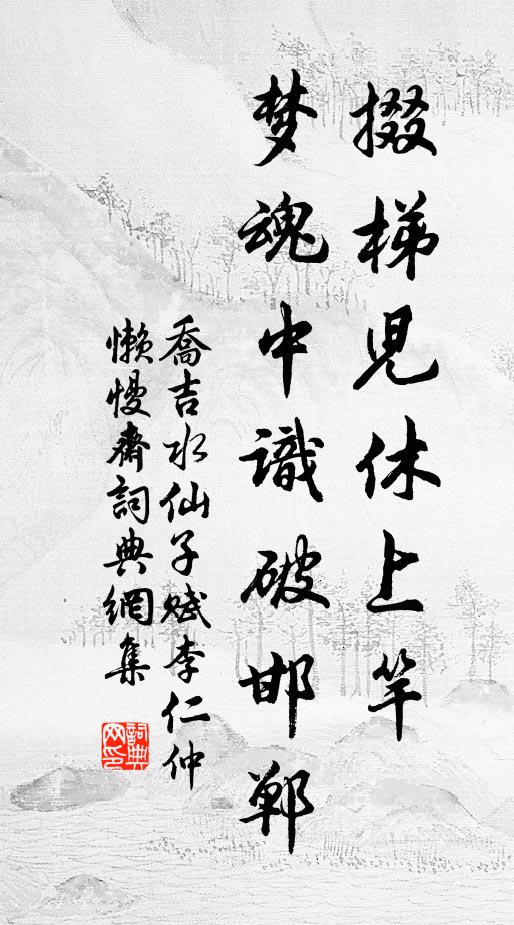 掇梯兒休上竿
梦魂中識破邯鄲
喬吉水仙子赋李仁仲
懒慢齋詞典網集
詞典
网印